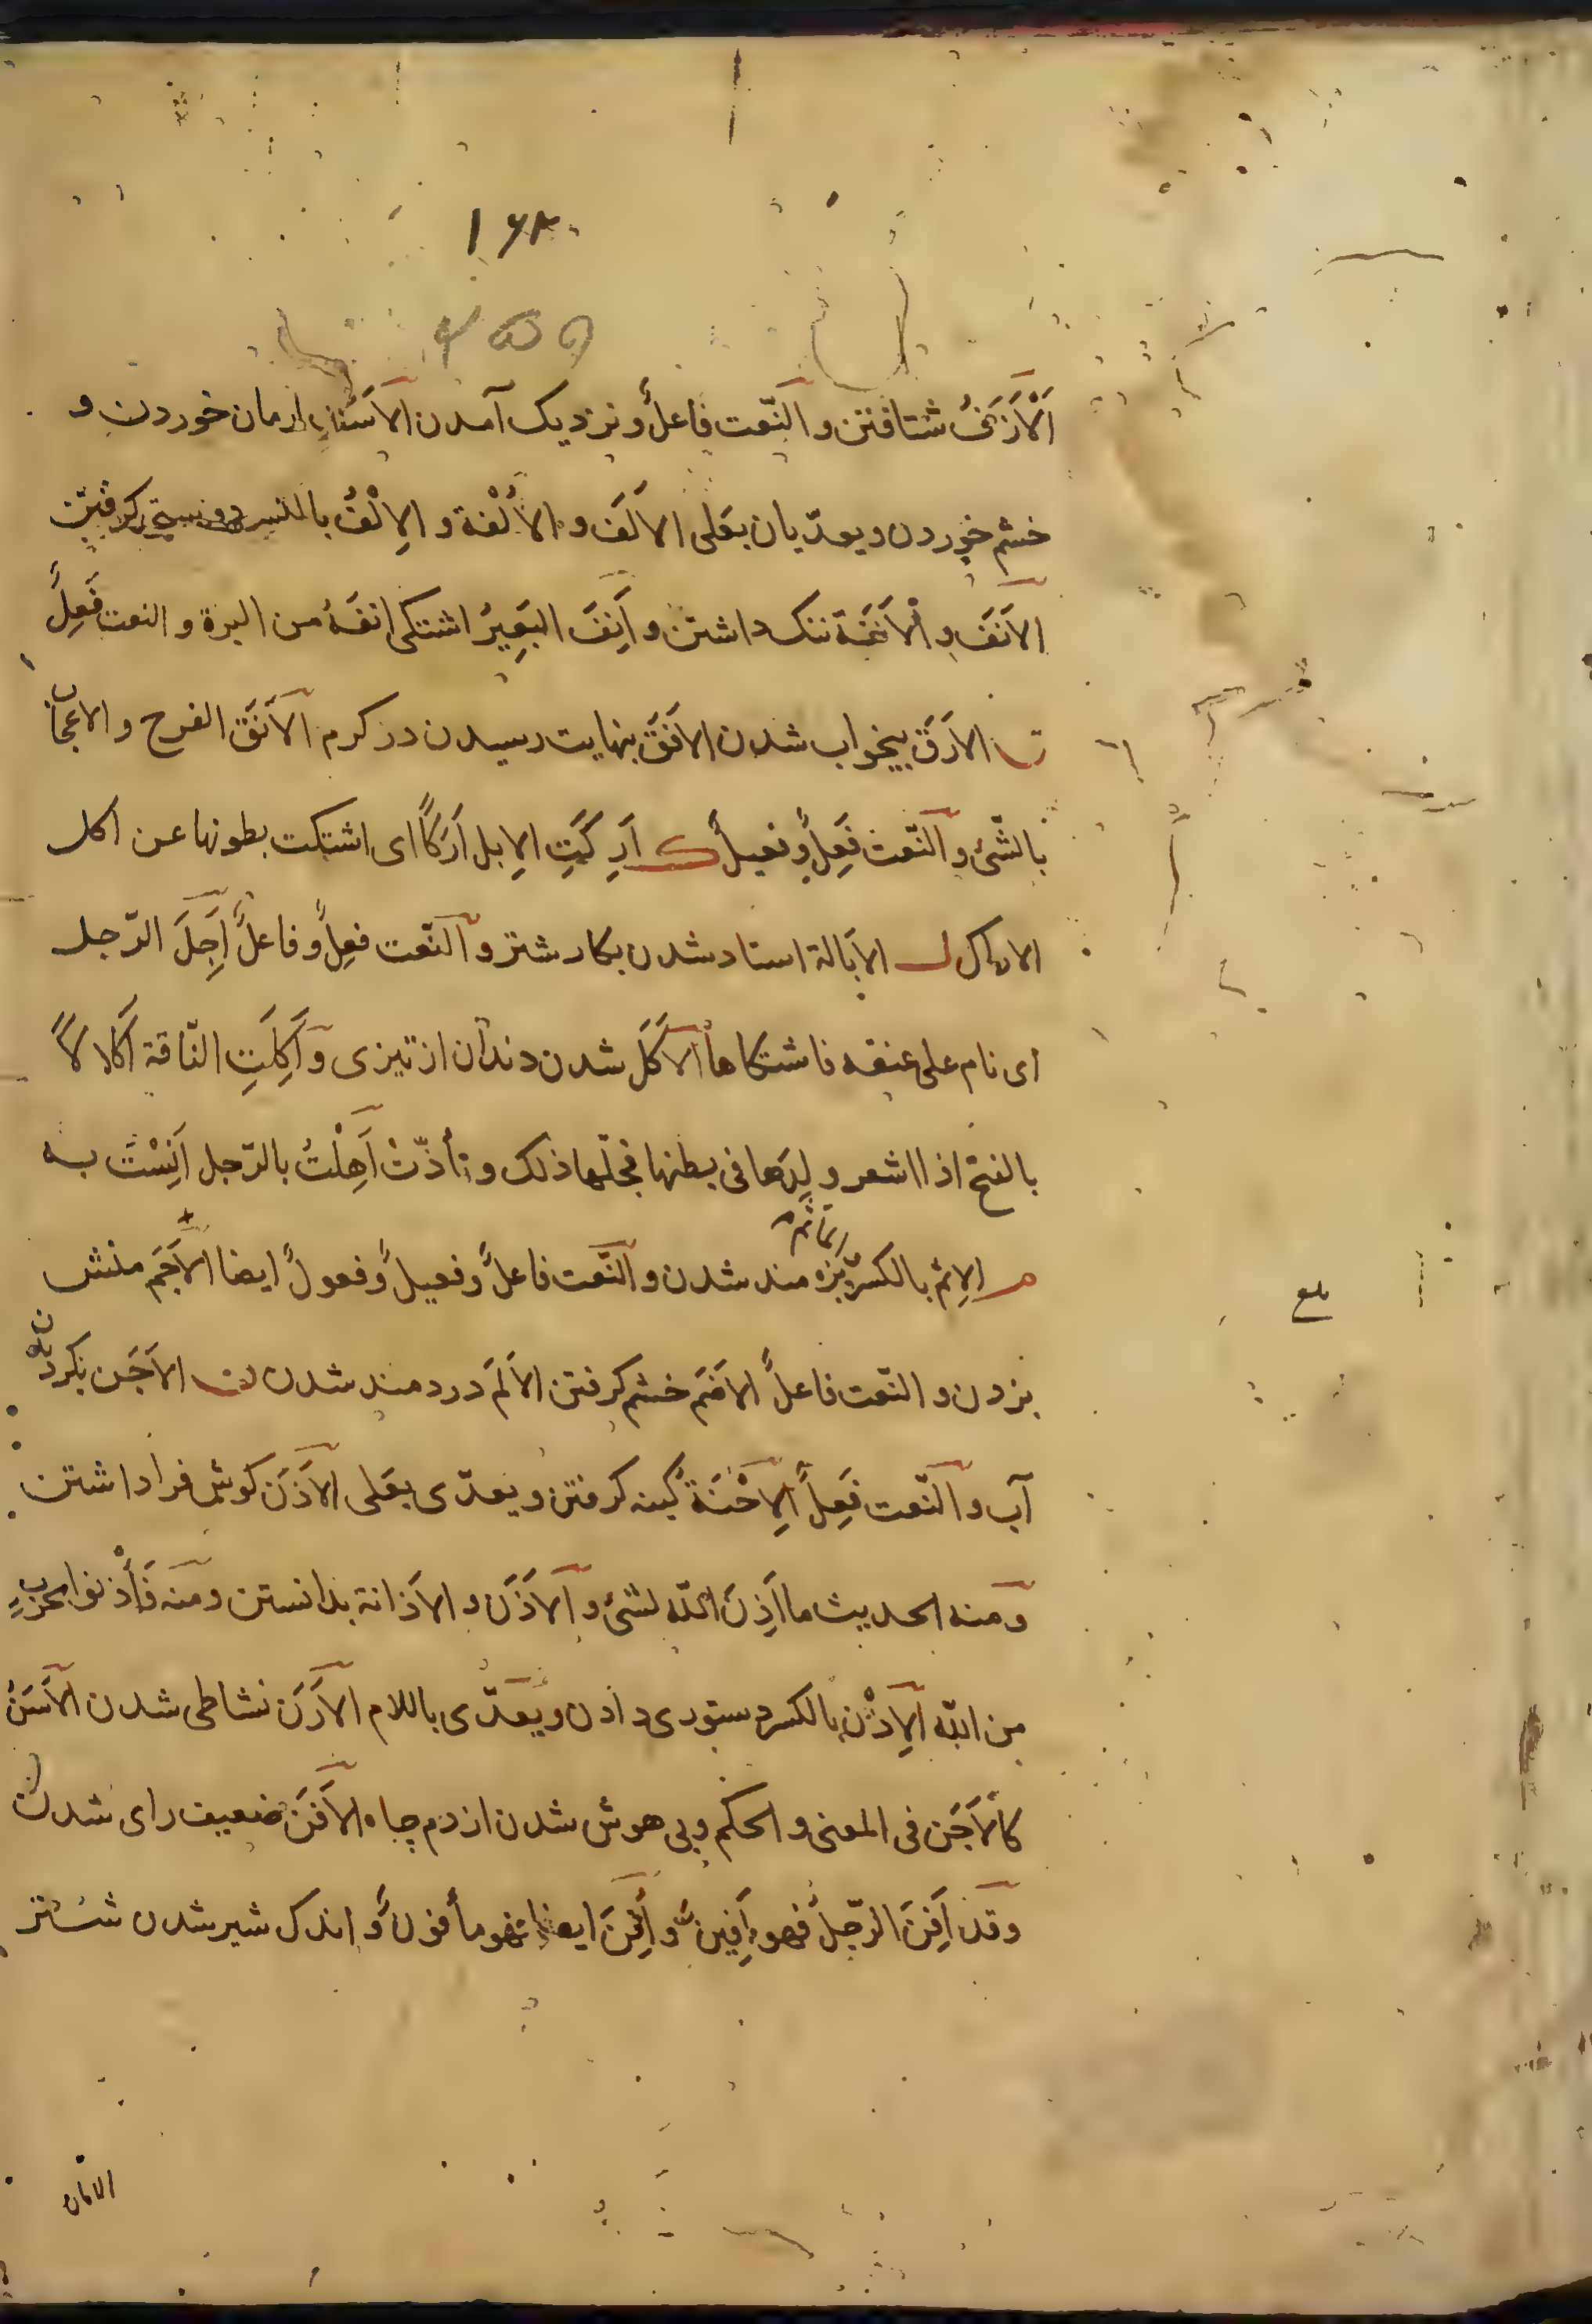 ۱۶۴
۴۵۹
اَلْاَزَفُ شتافتن و النّعت فاعلٌ و نزدیک آمدن الاَسَف ارمان خوردن و
خشم خوردن و یعدّیان بعَلی الاَلَف و الاُلْفة و الاِلْفُ بالکسر دوستی کرفتن
الاَنَف و الْاَنَفَة ننک داشتن و اَنِفَ البَعِیرُ اشتکی انفَهُ من البرة و النعت فَعِلٌ
ق الاَرَق بیخواب شدن الاَفَق بنهایت رسیدن در کرم الاَنَق الفرح و الاعجاب
بالشّئ و النّعت فَعِلٌ و فعیلٌ ک اَرِکَتِ الاِبل اَرَکاً ای اشتکت بطونها عن اکل
الاراک ل الاَبالة استاد شدن بکار شتر و النّعت فعِلٌ و فاعلٌ اَجِلَ الرّجل
ای نام علی عنقه فاشتکاها الاَکَل شدن دندان از تیزی و اَکِلَتِ النّاقة اَکالاً
بالفتح اذا اشعر ولدها فی بطنها فحکّها ذلک و تأذّتْ اَهِلْتُ بالرّجل اَنِسْتُ به
م الاِثم بالکسر بزه مند شدن و النّعت فاعلٌ و فعیلٌ و فعولٌ ایضا الاَجَم منش
بزدن و النّعت فاعلٌ الاَضَم خشم کرفتن الاَلَم درد مند شدن ن الاَجَن بکردیدن
آب و النّعت فَعِلٌ اَلاِحْنَةُ کینه کرفتن و یعدّی بعَلی الاَذَن کوش فرا داشتن
و منه الحدیث ما اَذِنَ اللّه لشئ و الاَذَن و الاَذانة بدانستن و منه فَأْذنوا بحربٍ
من اللّه الاِذْن بالکسر دستوری دادن و یُعَدّی باللام الاَرَن نشاطی شدن الاَسَنُ
کالاَجَن فی المعنی و الحکم و بی هوش شدن از دم چاه الاَفَن ضعیف رای شدن
و قد اَفِنَ الرّجلُ فهو اَفِینٌ و اُفِنَ ایضا فهو مأفونٌ و اندک شیر شدن شتر